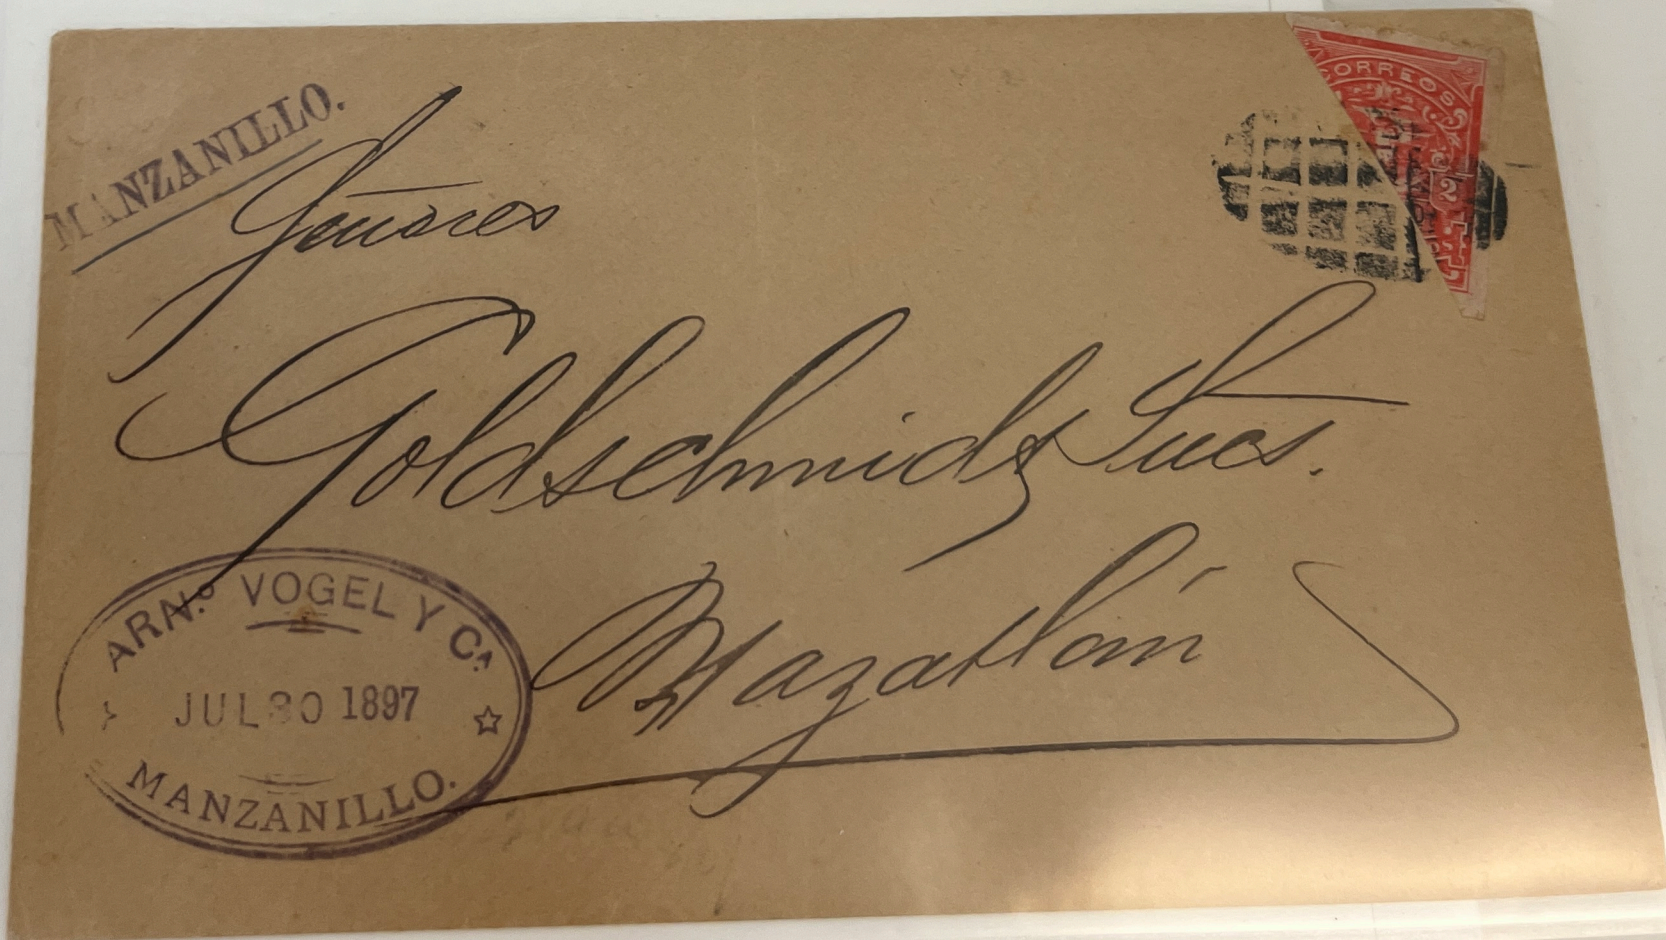 MANZANILLO.
CORREOS
Señores
Goldschmidt Sucs.
Mazatlán
ARN.º VOGEL Y Cª
JUL 30 1897
MANZANILLO.